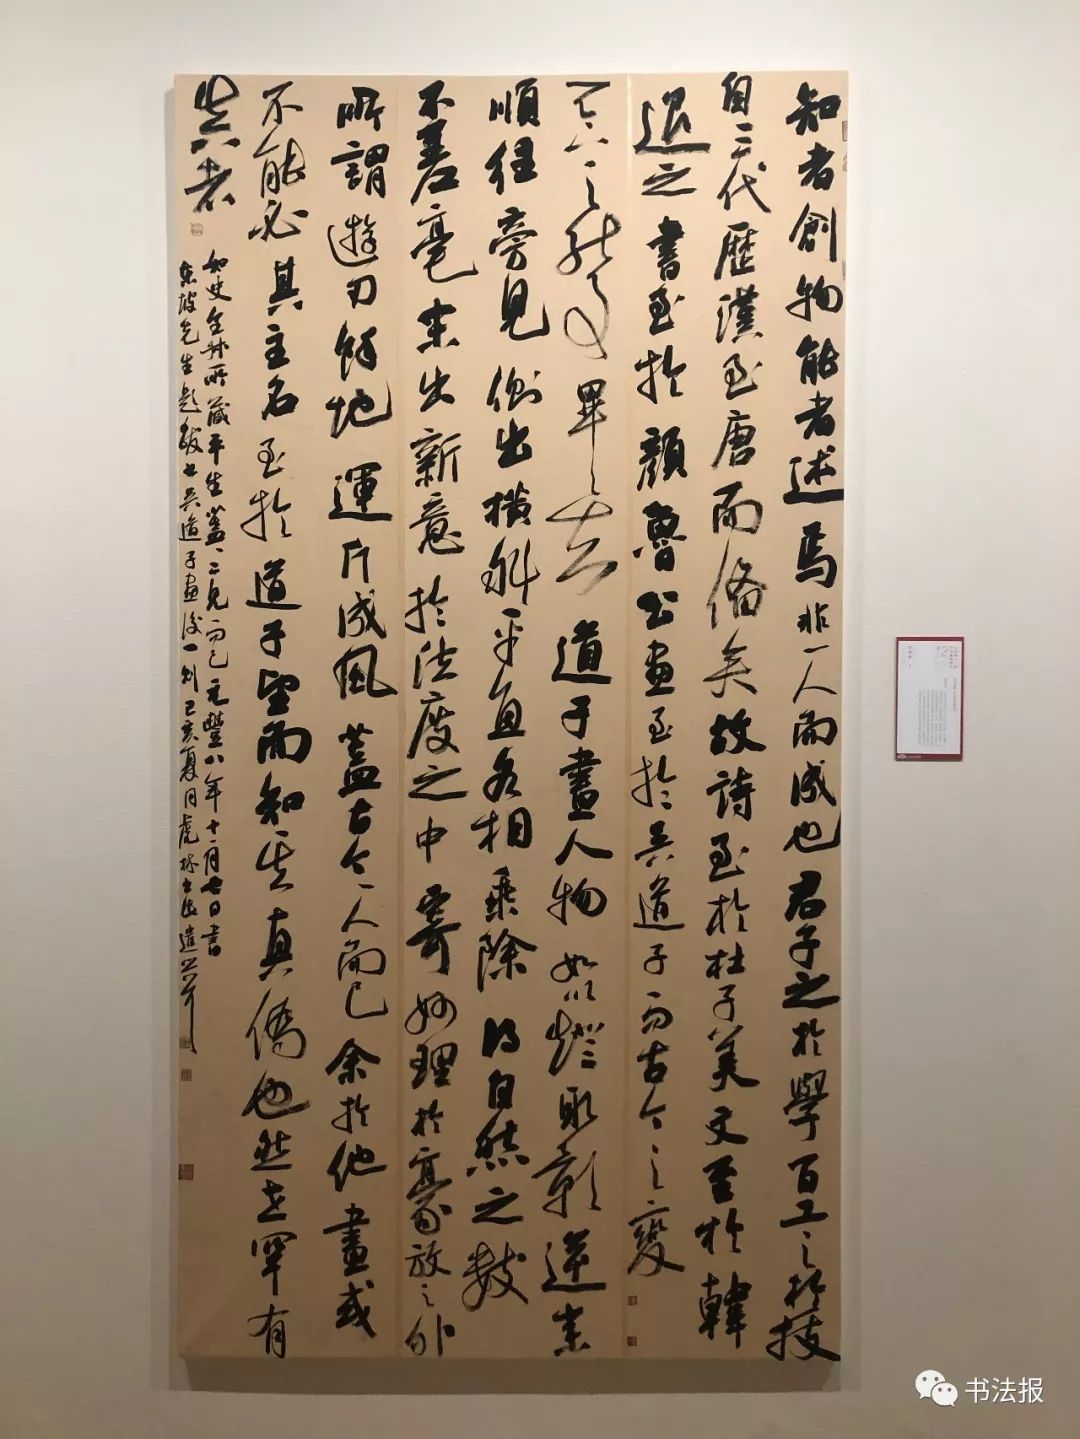 知者創物能者述焉非一人而成也君子之於學百工之於技
自三代歷漢至唐而備矣故詩至於杜子美文至於韓
退之書至於顏魯公畫至於吳道子而古今之變
天下之能事畢之矣道子畫人物如以燈取影逆來
順往旁見側出橫斜平直各相乘除得自然之數
不差毫末出新意於法度之中寄妙理於豪放之外
所謂遊刃餘地運斤成風蓋古今一人而已余於他畫或
不能必其主名至於道子望而知其真偽也然世罕有
真者
如史全叔所藏平生蓋一二見而已元豐八年十一月七日書
東坡先生題跋書吳道子畫後一則己亥夏月
书法报